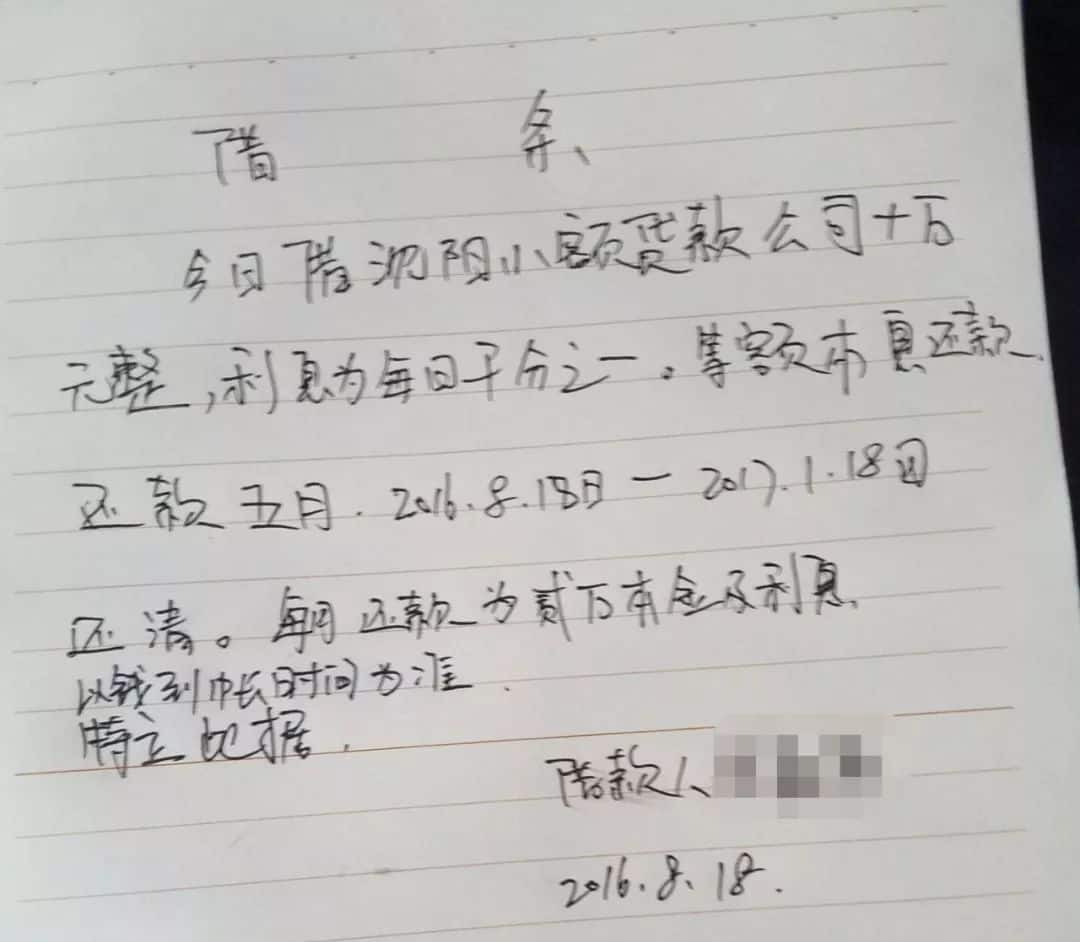 借 条、
今日借沈阳小额贷款公司十万
元整,利息为每日千分之一。等额本息还款.
还款五月.2016.8.18日—2017.1.18日
还清。每月还款为贰万本金及利息.
以钱到帐时间为准.
特立此据.
借款人
2016.8.18.